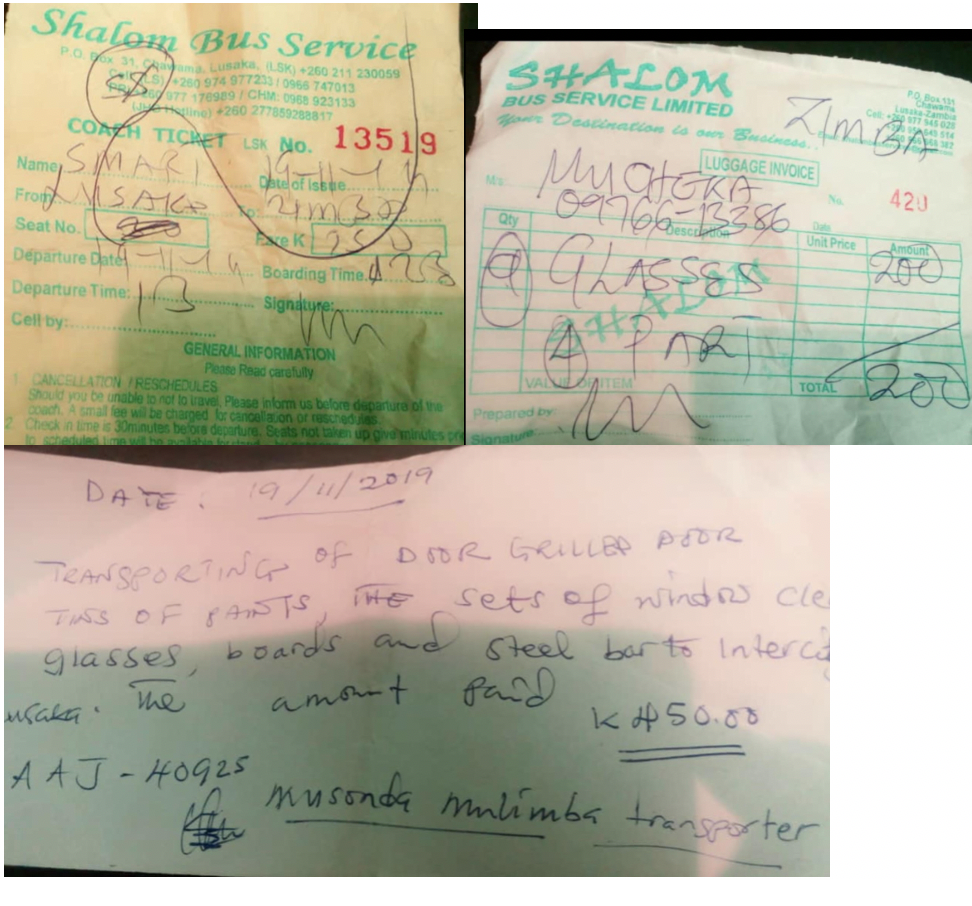 Shalom Bus Service
P.O. Box 31, Chawama, Lusaka, (LSK) +260 211 230059
+260 974 977233 / 0966 747013
260 977 176989 / CHM: 0968 923133
(JHB Hotline) +260 277859288817
COACH TICKET LSK No. 13519
Name SMART Date of Issue 19-11-19
From LUSAKA To: ZIMBA
Seat No. Fare K 250
Departure Date: 19-11-19 Boarding Time
Departure Time: 13 Signature:
Cell by:
GENERAL INFORMATION
Please Read carefully
1 CANCELLATION / RESCHEDULES
Should you be unable to not to travel, Please inform us before departure of the
coach. A small fee will be charged for cancellation or reschedules.
2 Check in time is 30minutes before departure. Seats not taken up give minutes pre
to scheduled time will be available for
SHALOM
BUS SERVICE LIMITED
Your Destination is our Business.
ZIMBA
P.O. Box 131
Chawama
Lusaka-Zambia
Cell: +260 977 945 028
LUGGAGE INVOICE
M/s MUCHEKA No. 420
09766-13386 Date
Qty Description Unit Price Amount
9 GLASSES 200
SHALOM
4 PART
VALUE OF ITEM TOTAL 200
Prepared by:
Signature:
DATE: 19/11/2019
TRANSPORTING OF DOOR GRILLED DOOR
TINS OF PAINTS, THE sets of window cle
glasses, boards and steel bar to Interci
usaka. The amount paid
K450.00
AAJ-40925
Musonda Mulimba transporter